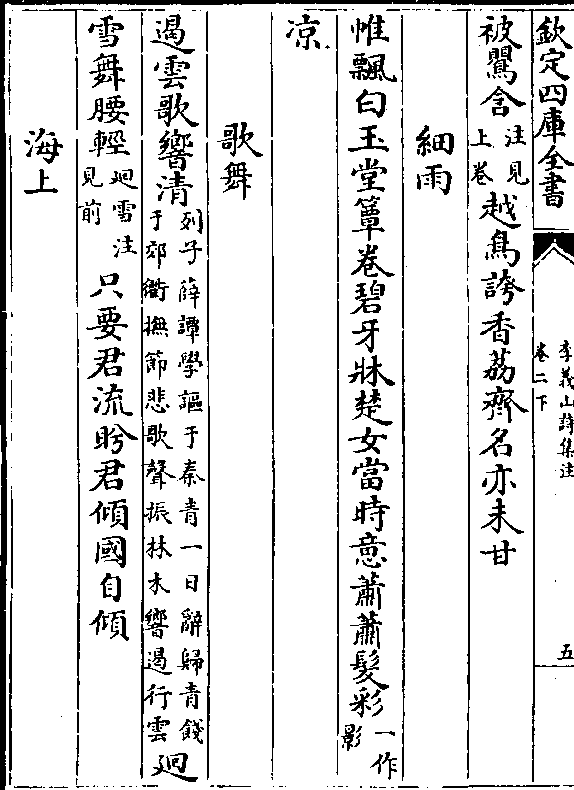 欽定四庫全書
李義山詩集注
卷二下
五
被鸎含注見上卷越鳥誇香荔齊名亦未甘
細雨
帷飄白玉堂簟卷碧牙牀楚女當時意蕭蕭髮彩一作影
凉
歌舞
遏雲歌響清列子薛譚學謳于秦青一日辭歸青餞于郊衢撫節悲歌聲振林木響遏行雲廻
雪舞腰輕廻雪注見前只要君流盻君傾國自傾
海上